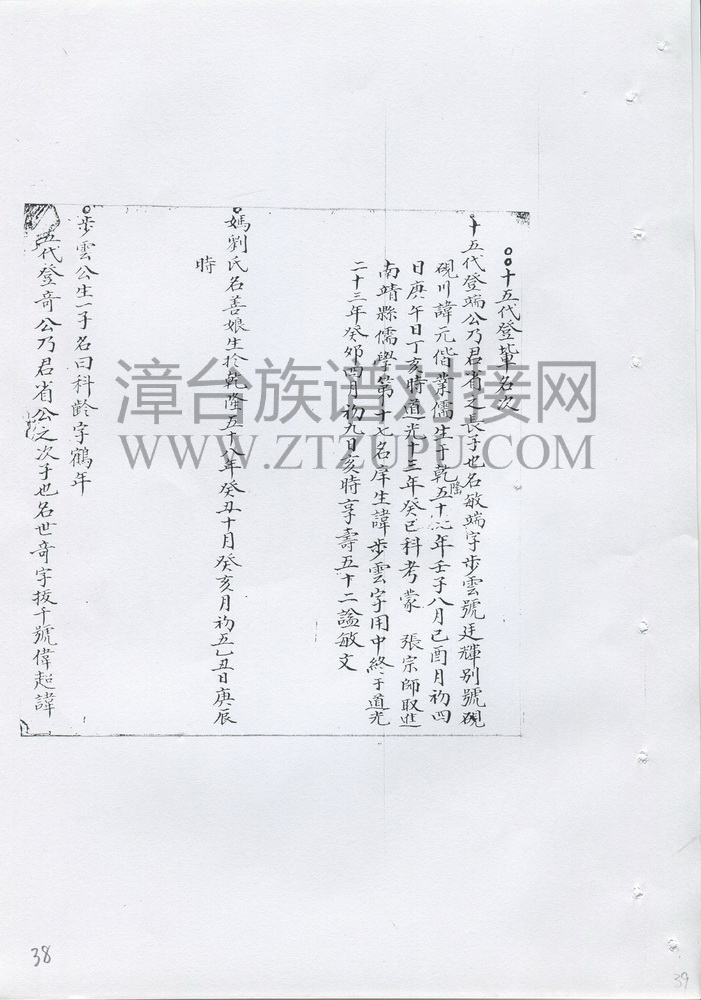 十五代登輩名次
十五代登端公乃君省之長子也名敏端字步雲號廷輝別號硯
硯川諱元偕業儒生于乾隆五十七年壬子八月己酉月初四
日庚午日丁亥時道光十三年癸巳科考蒙 張宗師取進
南靖縣儒學第十七名庠生諱步雲字用中終于道光
二十三年癸卯四月初九日亥時享壽五十二謚敏文
媽劉氏名善娘生於乾隆五十八年癸丑十月癸亥月初五乙丑日庚辰
時
步雲公生一子名曰科齡字鶴年
五代登奇公乃君省公之次子也名世奇字拔千號偉超諱
漳台族谱对接网
WWW.ZTZUPU.COM
38
39